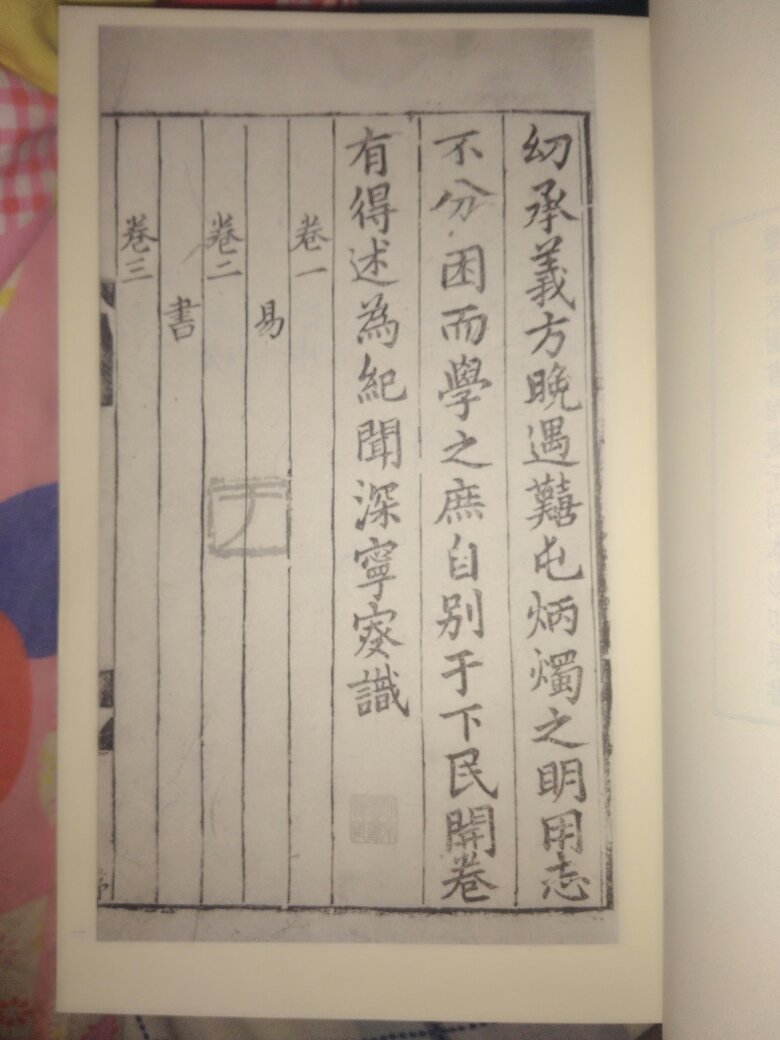 幼承義方晚遇囏屯炳燭之明用志
不分困而學之庶自别于下民開卷
有得述為紀聞深寧叟識
卷一
易
卷二
書
卷三